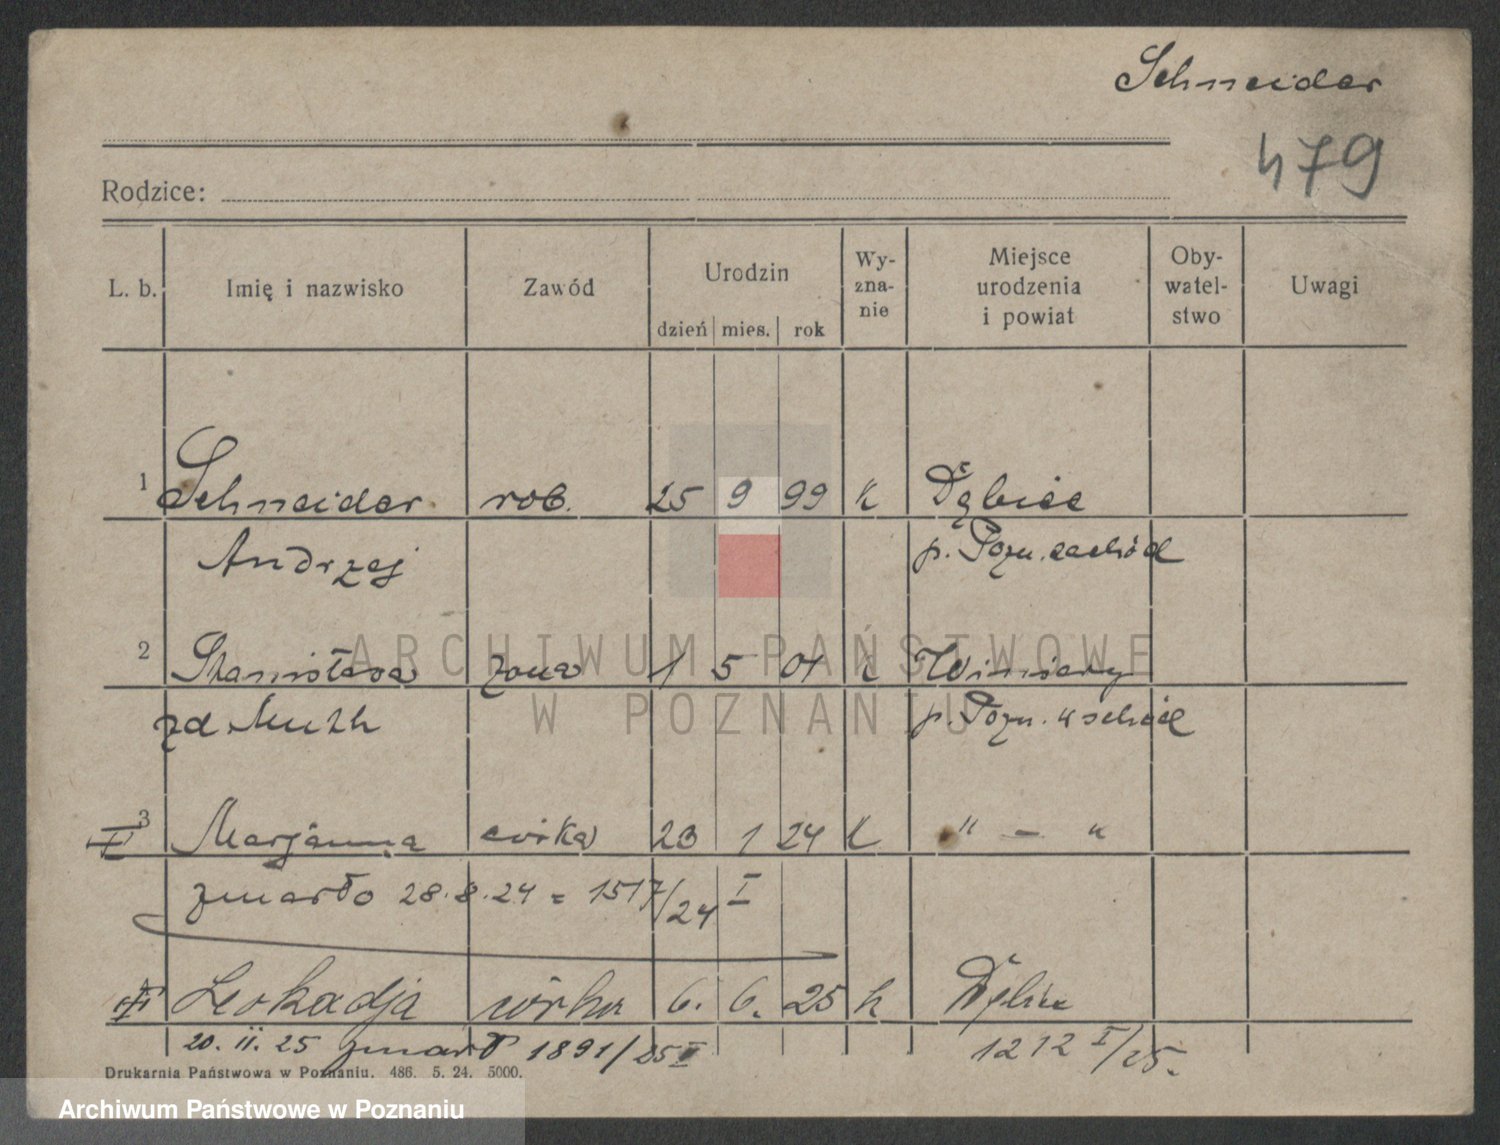 Schneider
479
Rodzice:
L. b. Imię i nazwisko Zawód Urodzin dzień mies. rok Wy-zna-nie Miejsce urodzenia i powiat Oby-watel-stwo Uwagi
1 Schneider rob. 25 9 99 k Dębiec
Andrzej p. Pozn. zachód
2 Stanisława żona 1 5 01 k Winiary
zd p. Pozn. wschód
3 Marjanna córka 23 1 24 k " — "
zmarło 28.8.24 = 1517/24 I
Leokadja córka 6. 6. 25 k Dębiec
20. II. 25 zmarł 1891/25 II 1212 I/25.
Drukarnia Państwowa w Poznaniu. 486. 5. 24. 5000.
ARCHIWUM PAŃSTWOWE
W POZNANIU
Archiwum Państwowe w Poznaniu